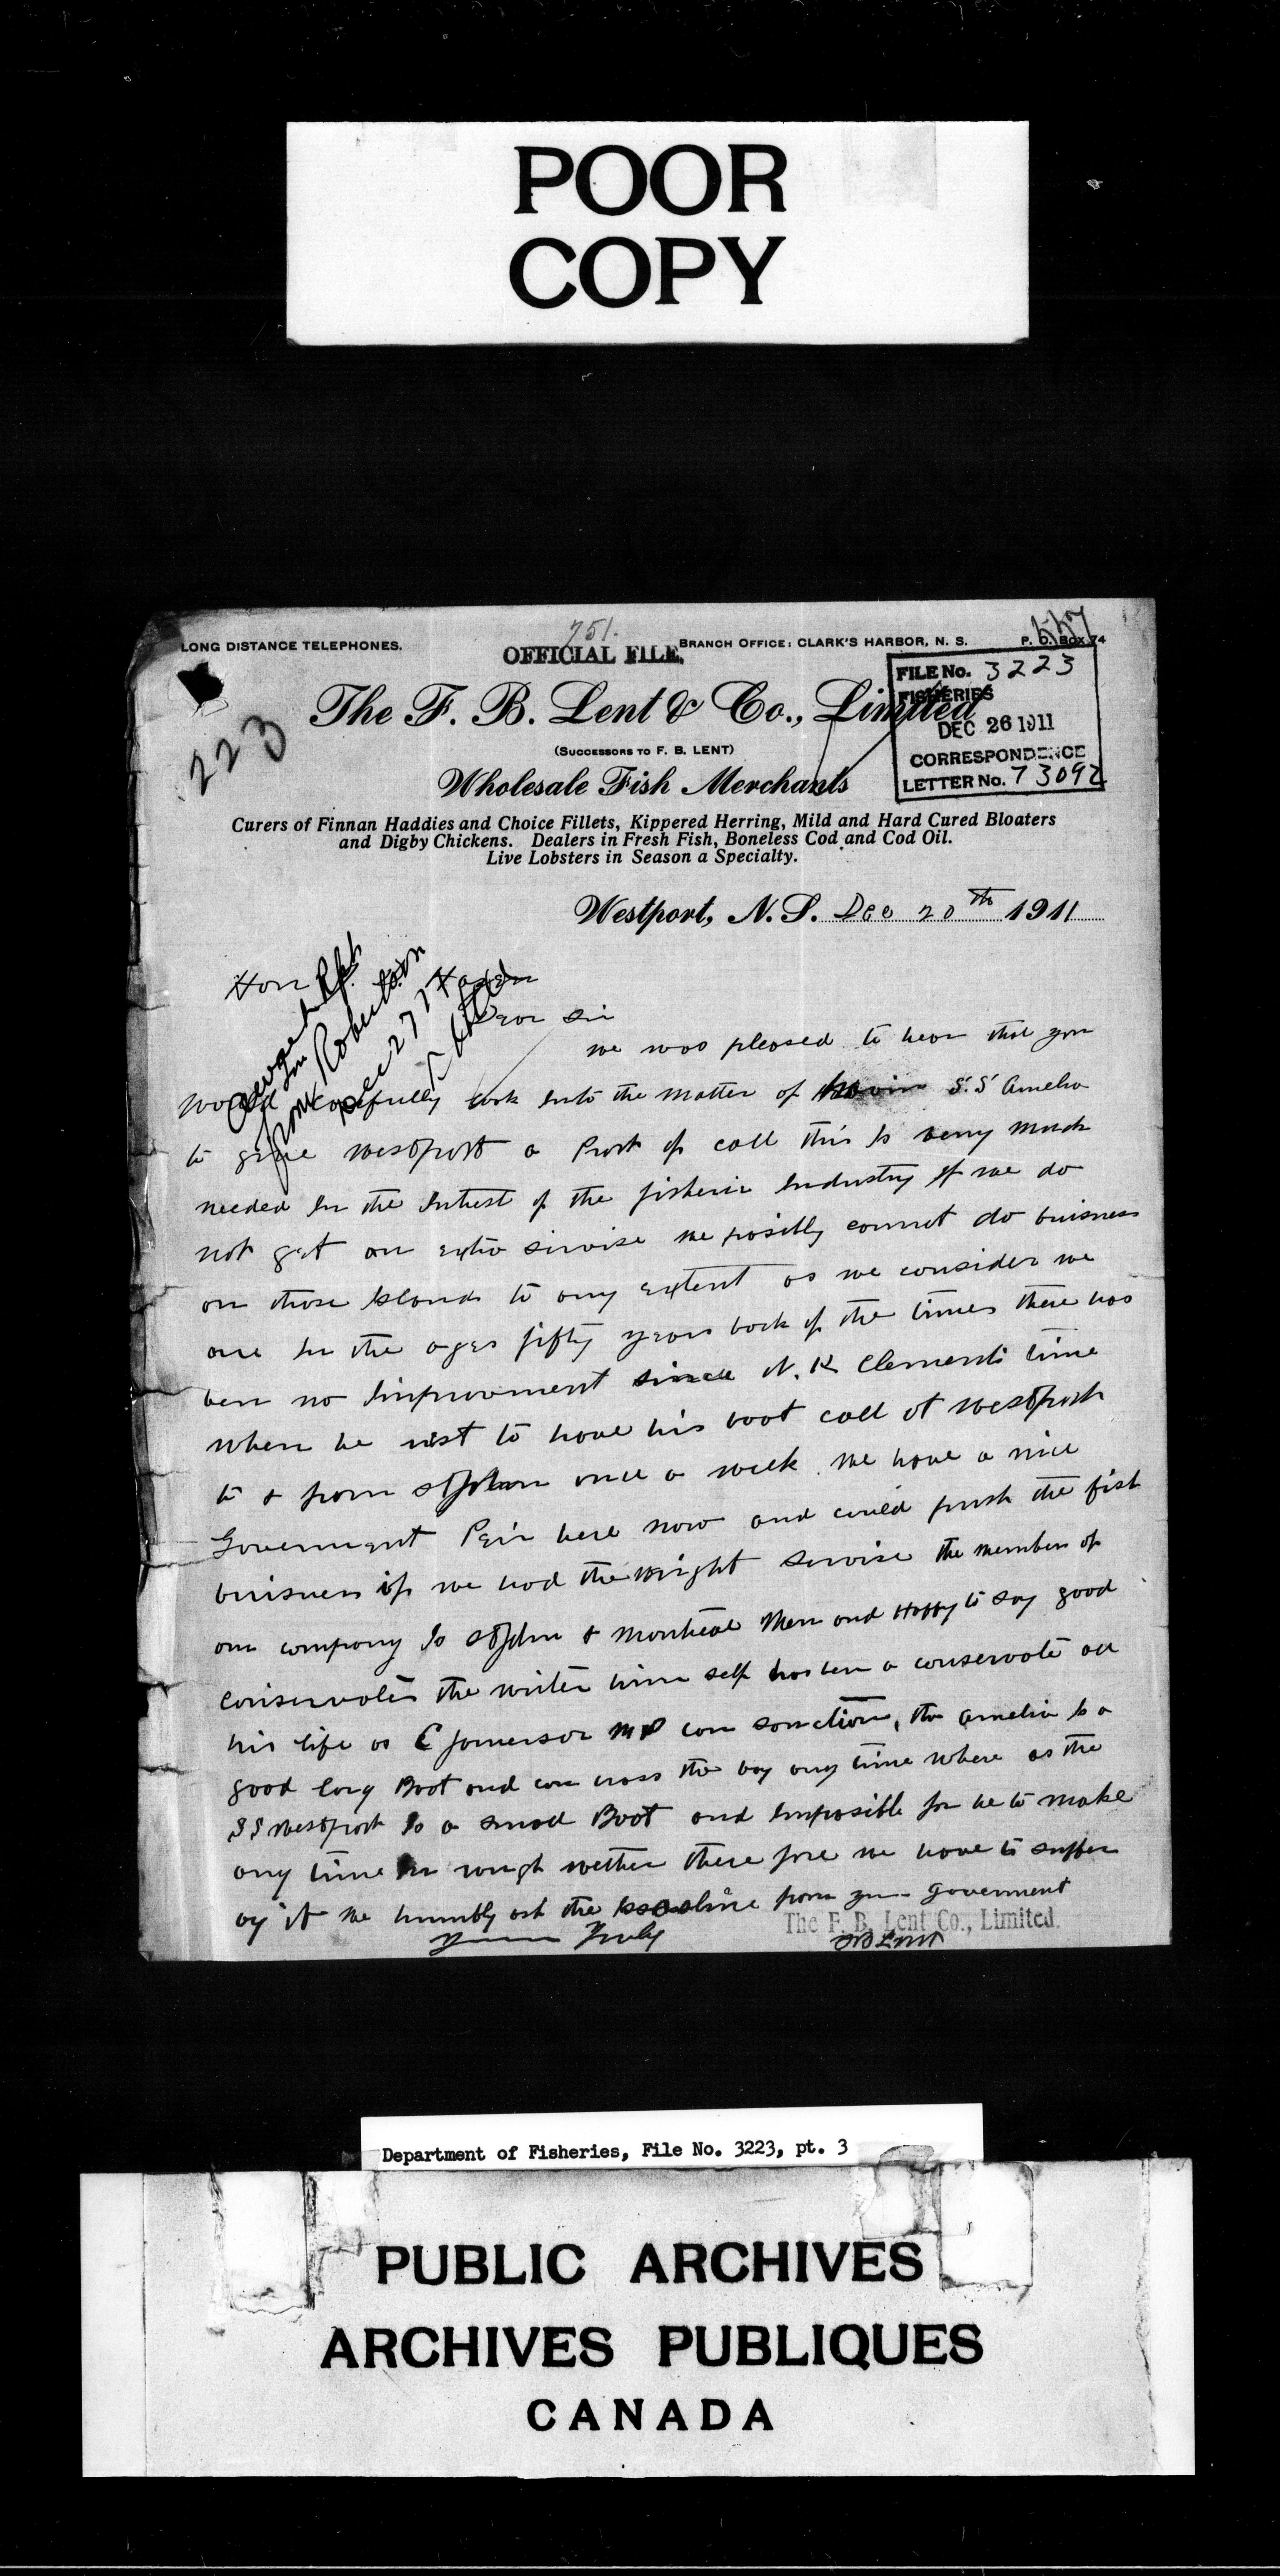 POOR
COPY
751.
LONG DISTANCE TELEPHONES.
OFFICIAL FILE.
BRANCH OFFICE: CLARK'S HARBOR, N. S.
P. O. BOX 74
FILE No. 3223
FISHERIES
DEC 26 1911
CORRESPONDENCE
LETTER No. 73092
223
The F. B. Lent & Co., Limited
(SUCCESSORS TO F. B. LENT)
Wholesale Fish Merchants
Curers of Finnan Haddies and Choice Fillets, Kippered Herring, Mild and Hard Cured Bloaters
and Digby Chickens. Dealers in Fresh Fish, Boneless Cod and Cod Oil.
Live Lobsters in Season a Specialty.
Westport, N. S. Dec 20th 1911
Hon
Hazen
Robertson
Dec 27
Dear Sir
we was pleased to hear that you
would carefully look into the matter of S.S Amelia
to give Westport a Port of call this Is very much
needed In the Intrest of the fisherie Industry If we do
not get an extra servise we posibly cannot do buisness
on those Islands to any extent as we consider we
are In the ages fifty years back of the times there has
ben no Improvement since N. K Clements time
when he ust to have his boat call at Westport
to & from St John once a week. We have a nice
Government Peir here now and could push the fish
buisness if we had the wright servise the members of
our company Is St John & Montreal Men and Happy to say good
conservates the writer him self has ben a conservate all
his life as C Jamerson MP can sanction, the Amelia Is a
good larg Boat and can cross the bay any time where as the
SS Westport Is a small Boat and Imposible for he to make
any time In rough wether there fore we have to suffer
by it We humbly ask the from your Goverment
Yours Truly
The F. B. Lent Co., Limited.
F B Lent
Department of Fisheries, File No. 3223, pt. 3
PUBLIC ARCHIVES
ARCHIVES PUBLIQUES
CANADA